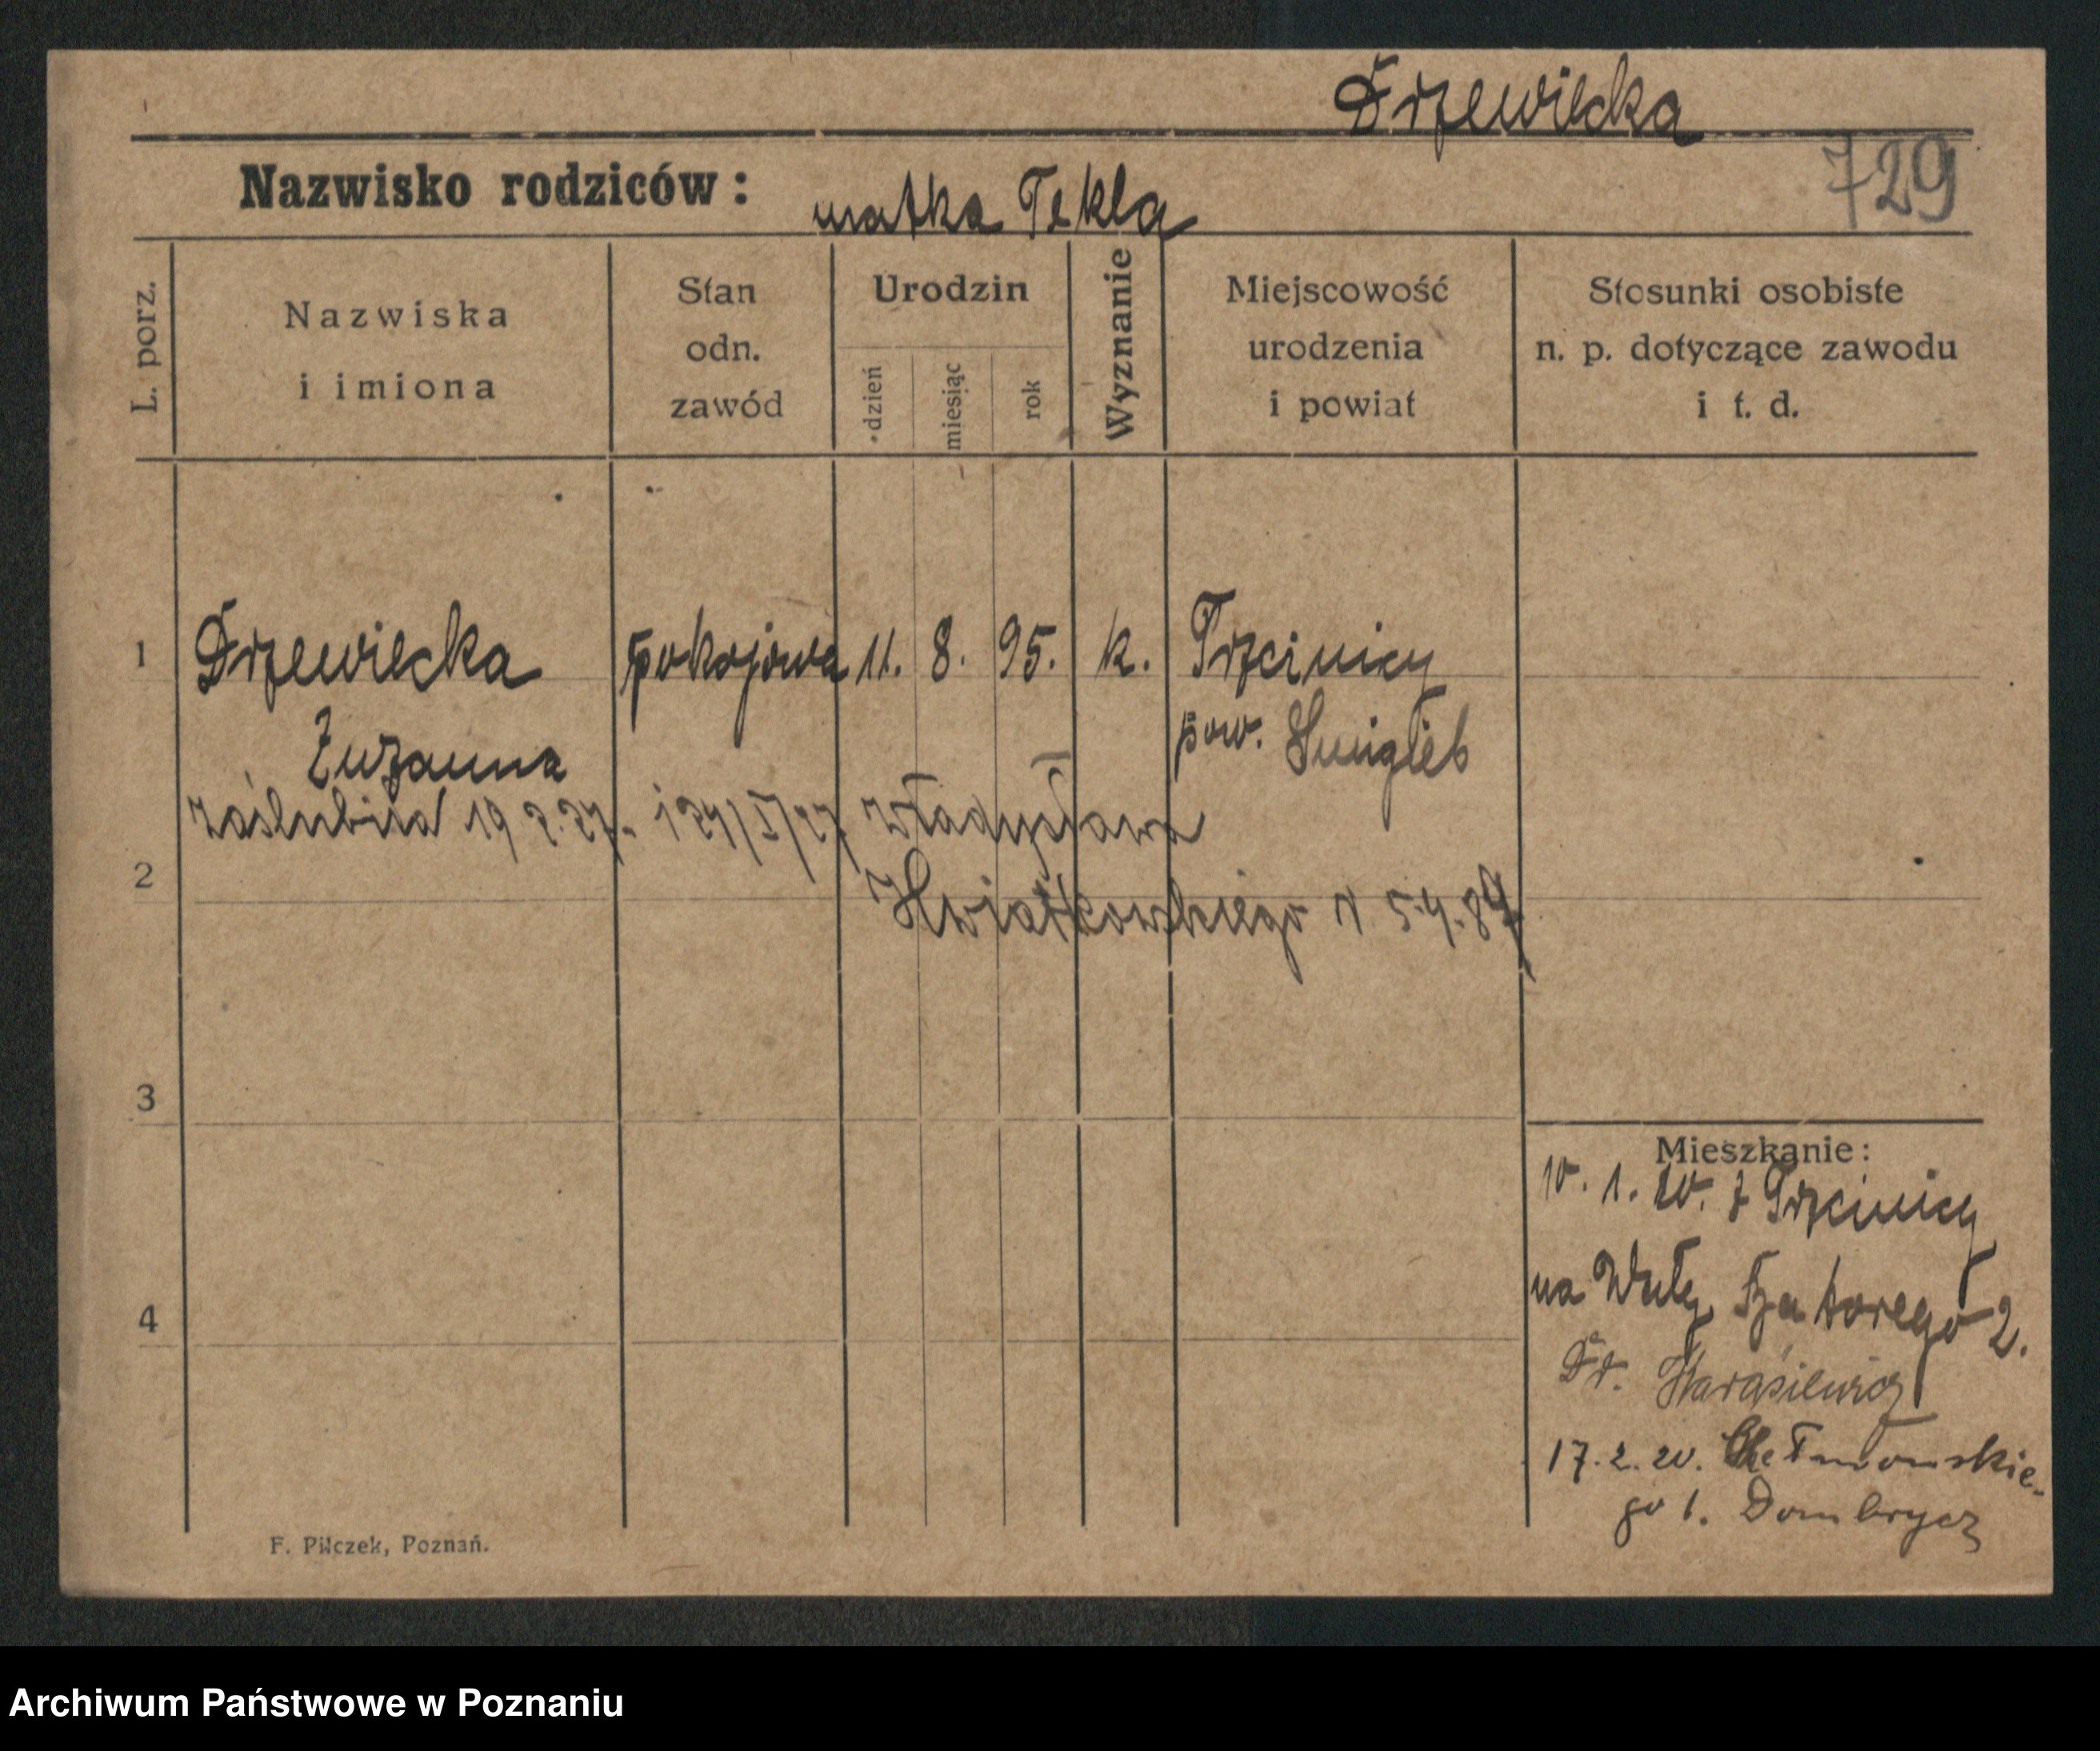 Drzewiecka
729
Nazwisko rodziców: matka Tekla
L. porz.
Nazwiska
i imiona
Stan
odn.
zawód
Urodzin
dzień
miesiąc
rok
Wyznanie
Miejscowość
urodzenia
i powiat
Stosunki osobiste
n. p. dotyczące zawodu
i t. d.
1
Drzewiecka pokojowa 11. 8. 95. k. Trzcinicy
Zuzanna
pow. Śmigiel
zaślubiła 19 2.27. 124/I/27 Władysława
2
Kwiatkowskiego
3
4
Mieszkanie:
10. 1. 20. z Trzcinicy
na Wały Batorego 2.
Dr. Karasiewicz
17. 2. 20. Chełmońskie-
go 1. Dombrycz
F. Pilczek, Poznań.
Archiwum Państwowe w Poznaniu